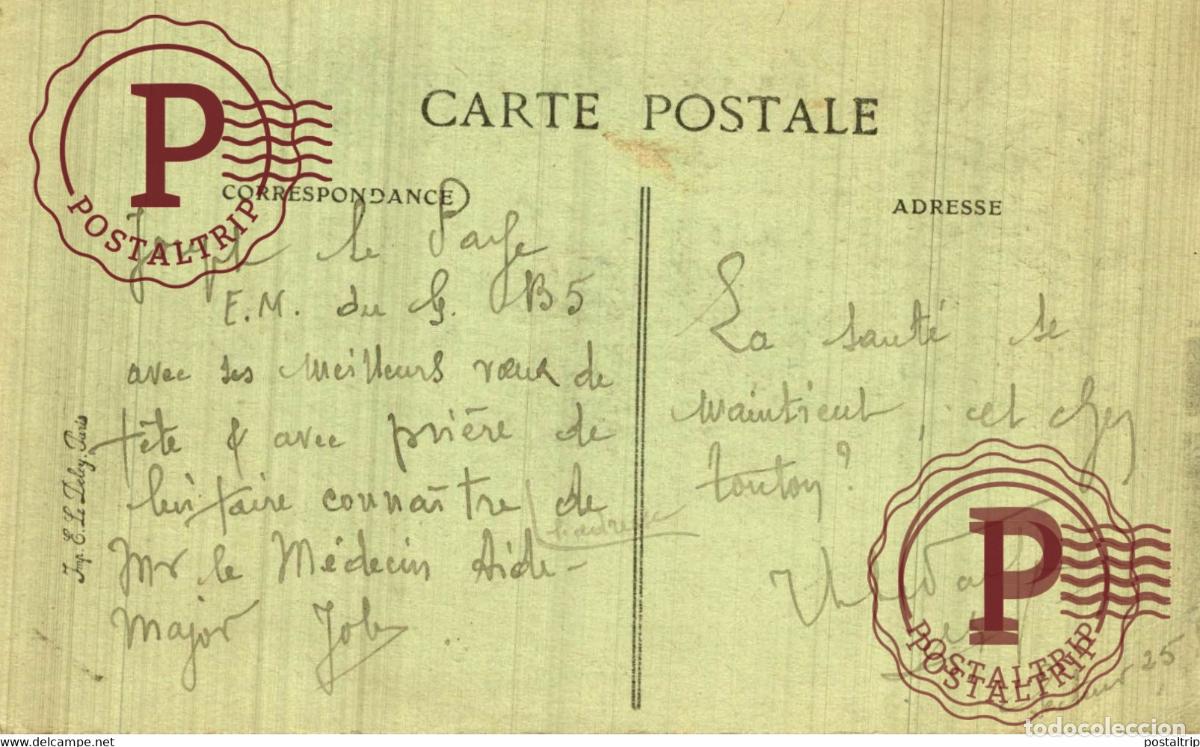 CARTE POSTALE
CORRESPONDANCE
ADRESSE
le
E.M. du G. B5
avec ses meilleurs vœux de
fête & avec prière de
lui faire connaître de
l'adresse
Mr le Médecin Aide-
Major Job
La santé se
maintient, et chez
tonton?
25
Imp. E. Le Deley, Paris
P
POSTALTRIP
P
POSTALTRIP
POSTALTRIP
todocoleccion
www.delcampe.net
postaltrip